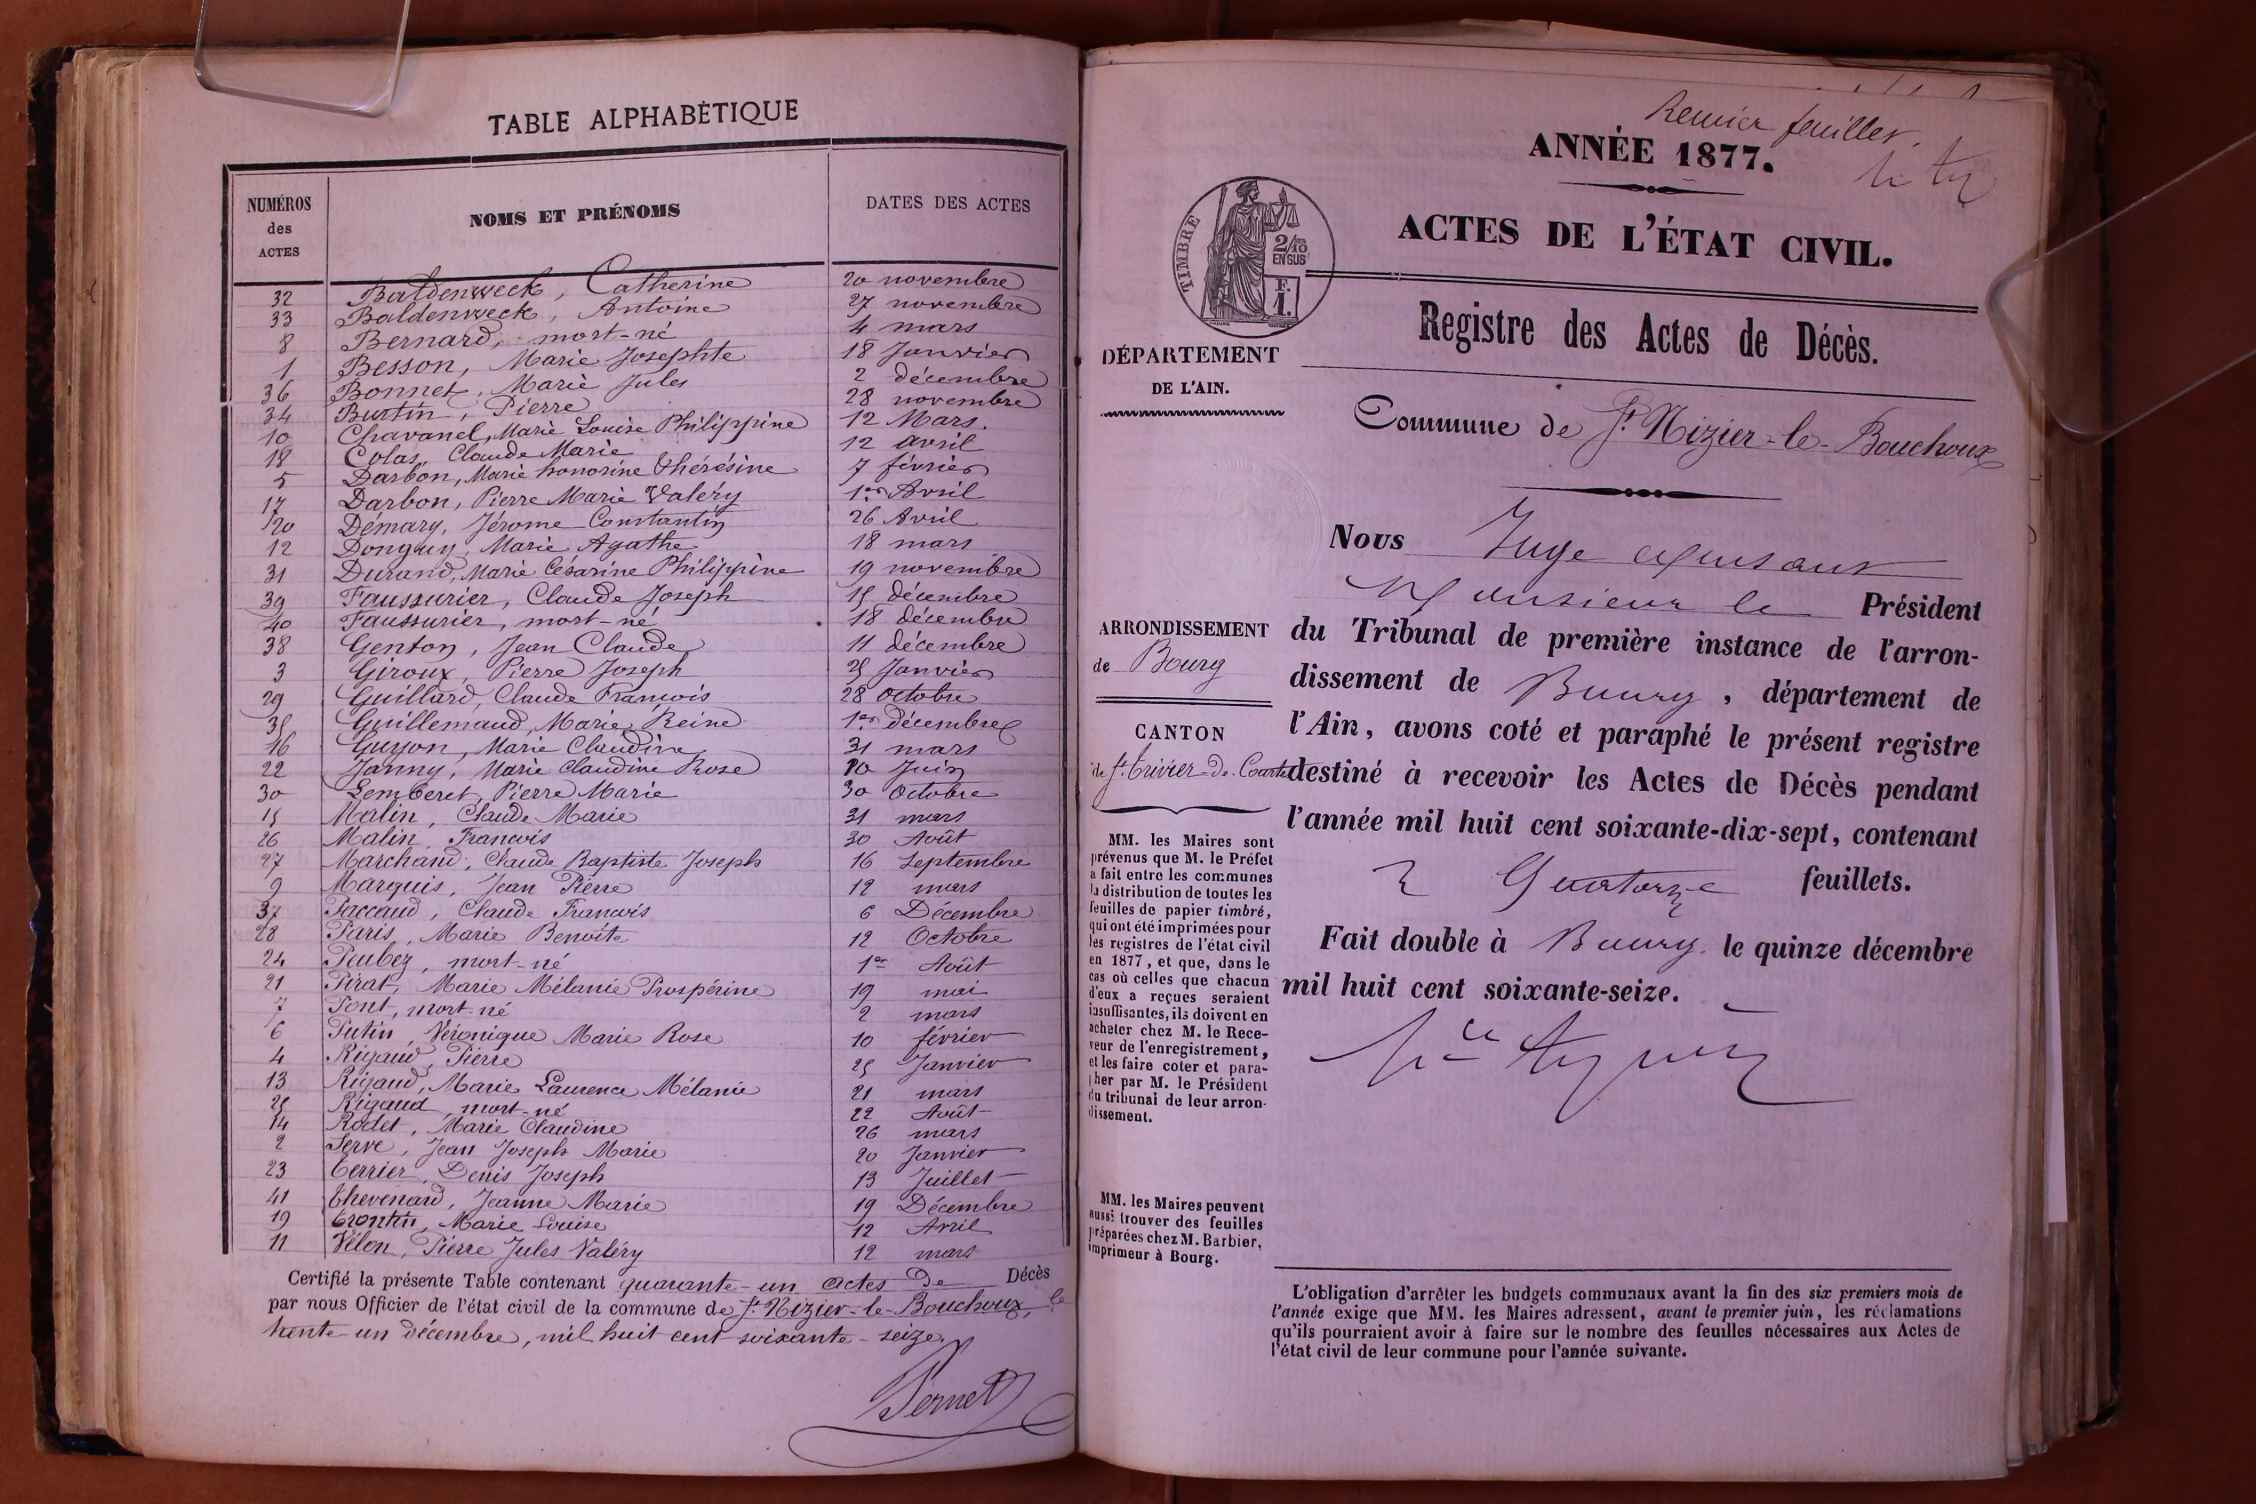 TABLE ALPHABÉTIQUE
NUMÉROS des ACTES NOMS ET PRÉNOMS DATES DES ACTES
32 Baldenweck, Catherine 20 novembre
33 Baldenweck, Antoine 27 novembre
8 Bernard, mort-né 4 mars
1 Besson, Marie Josephte 18 Janvier
36 Bonnet, Marie Jules 2 décembre
34 Burtin, Pierre 28 novembre
10 Chavanel, Marie Louise Philippine 12 Mars.
18 Colas, Claude Marie 12 avril
5 Darbon, Marie honorine Thérésine 7 février
17 Darbon, Pierre Marie Valéry 1er Avril
20 Démary, Jérome Constantin 26 Avril
12 Donguy, Marie Agathe 18 mars
31 Durand, Marie Césarine Philippine 19 novembre
39 Faussurier, Claude Joseph 15 décembre
40 Faussurier, mort-né 18 décembre
38 Genton, Jean Claude 11 décembre
3 Giroux, Pierre Joseph 25 Janvier
29 Guillard, Claude François 28 Octobre
35 Guillemaud, Marie Reine 1er décembre
16 Guyon, Marie Claudine 31 mars
22 Janny, Marie Claudine Rose 10 Juin
30 Lemberet, Pierre Marie 30 Octobre
15 Malin, Claude Marie 31 mars
26 Malin, François 30 Août
27 Marchand, Claude Baptiste Joseph 16 Septembre
9 Marquis, Jean Pierre 12 mars
37 Paccaud, Claude François 6 Décembre
28 Paris, Marie Benoite 12 Octobre
24 mort-né 1er Août
21 Pirat, Marie Mélanie Prospérine 19 mai
7 Pont, mort-né 2 mars
6 Putin, Véronique Marie Rose 10 février
4 Rigaud, Pierre 25 Janvier
13 Rigaud, Marie Laurence Mélanie 21 mars
25 Rigaud, mort-né 22 Août
14 Rodet, Marie Claudine 26 mars
2 Serve, Jean Joseph Marie 20 Janvier
23 Terrier, Denis Joseph 13 Juillet
41 Thevenard, Jeanne Marie 19 Décembre
19 Trontin, Marie Louise 12 Avril
11 Vélon, Pierre Jules Valéry 12 mars
Certifié la présente Table contenant quarante-un actes de Décès
par nous Officier de l'état civil de la commune de St Nizier-le-Bouchoux, le
trente-un décembre, mil huit cent soixante-seize.
Pernet
Premier feuillet.
ANNÉE 1877.
ACTES DE L'ÉTAT CIVIL.
TIMBRE
2/10 EN SUS
F. 1.
Registre des Actes de Décès.
DÉPARTEMENT
DE L'AIN.
Commune de St Nizier-le-Bouchoux
ARRONDISSEMENT
de Bourg
CANTON
de St Trivier-de-Courtes
MM. les Maires sont
prévenus que M. le Préfet
a fait entre les communes
la distribution de toutes les
feuilles de papier timbré,
qui ont été imprimées pour
les registres de l'état civil
en 1877, et que, dans le
cas où celles que chacun
d'eux a reçues seraient
insuffisantes, ils doivent en
acheter chez M. le Rece-
veur de l'enregistrement,
et les faire coter et para-
pher par M. le Président
du tribunal de leur arron-
dissement.
MM. les Maires peuvent
aussi trouver des feuilles
préparées chez M. Barbier,
imprimeur à Bourg.
Nous Juge
Monsieur le Président
du Tribunal de première instance de l'arron-
dissement de Bourg, département de
l'Ain, avons coté et paraphé le présent registre
destiné à recevoir les Actes de Décès pendant
l'année mil huit cent soixante-dix-sept, contenant
Quatorze feuillets.
Fait double à Bourg le quinze décembre
mil huit cent soixante-seize.
L'obligation d'arrêter les budgets communaux avant la fin des six premiers mois de
l'année exige que MM. les Maires adressent, avant le premier juin, les réclamations
qu'ils pourraient avoir à faire sur le nombre des feuilles nécessaires aux Actes de
l'état civil de leur commune pour l'année suivante.